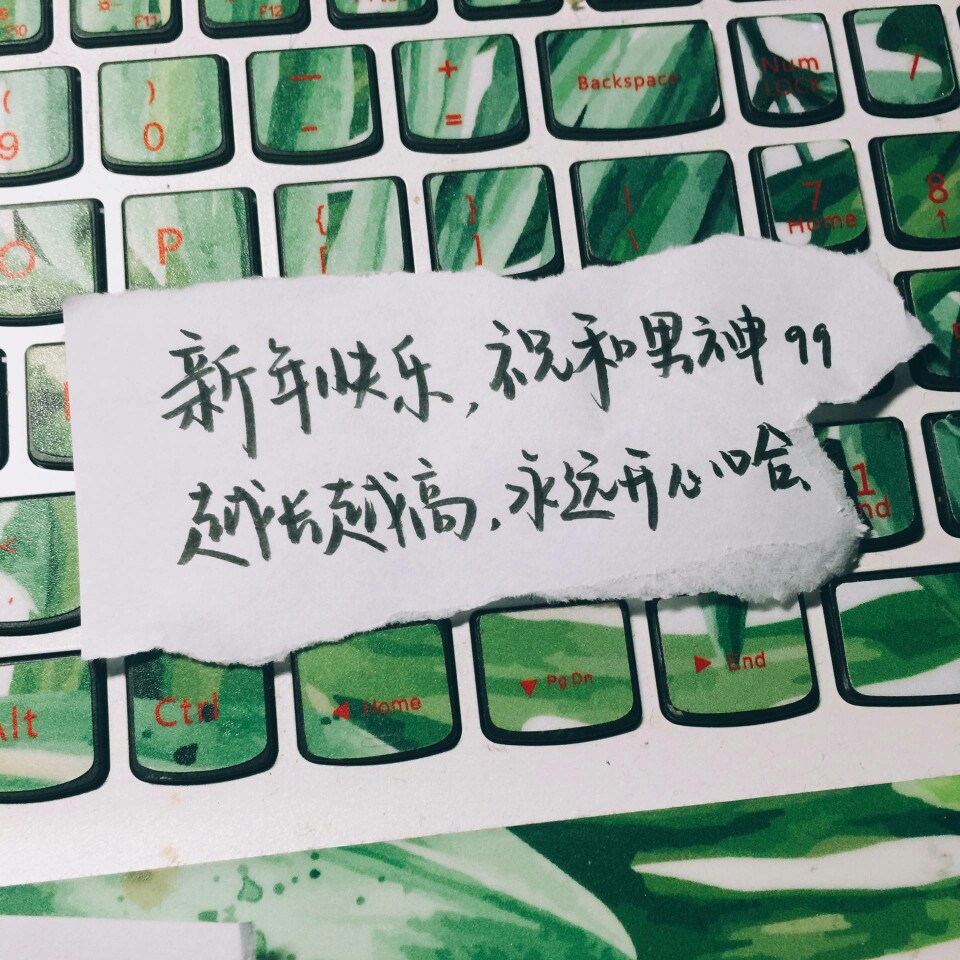 F10 F11 F12
( ) — + Backspace Num /
9 0 - = LOCK
O P { } | 7 8
[ ] \ Home ↑
新年快乐,祝和男神99
越长越高,永远开心哈
< 1
, End
Alt Ctrl ◀ Home ▼ Pg Dn ▶ End